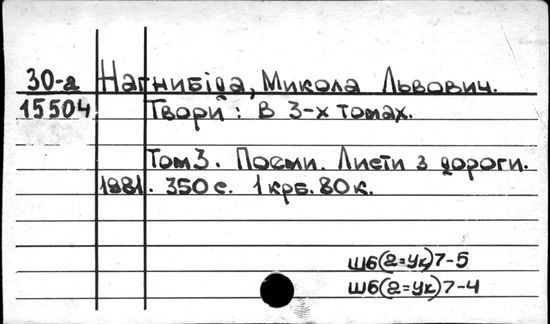 30-а Нагнибіда, Микола Львович.
15504 Твори: В 3-х томах.
Том 3. Поеми. Листи з дороги.
1981. 350 с. 1 крб. 80 к.
Ш6(2=Ук)7-5
Ш6(2=Ук)7-4